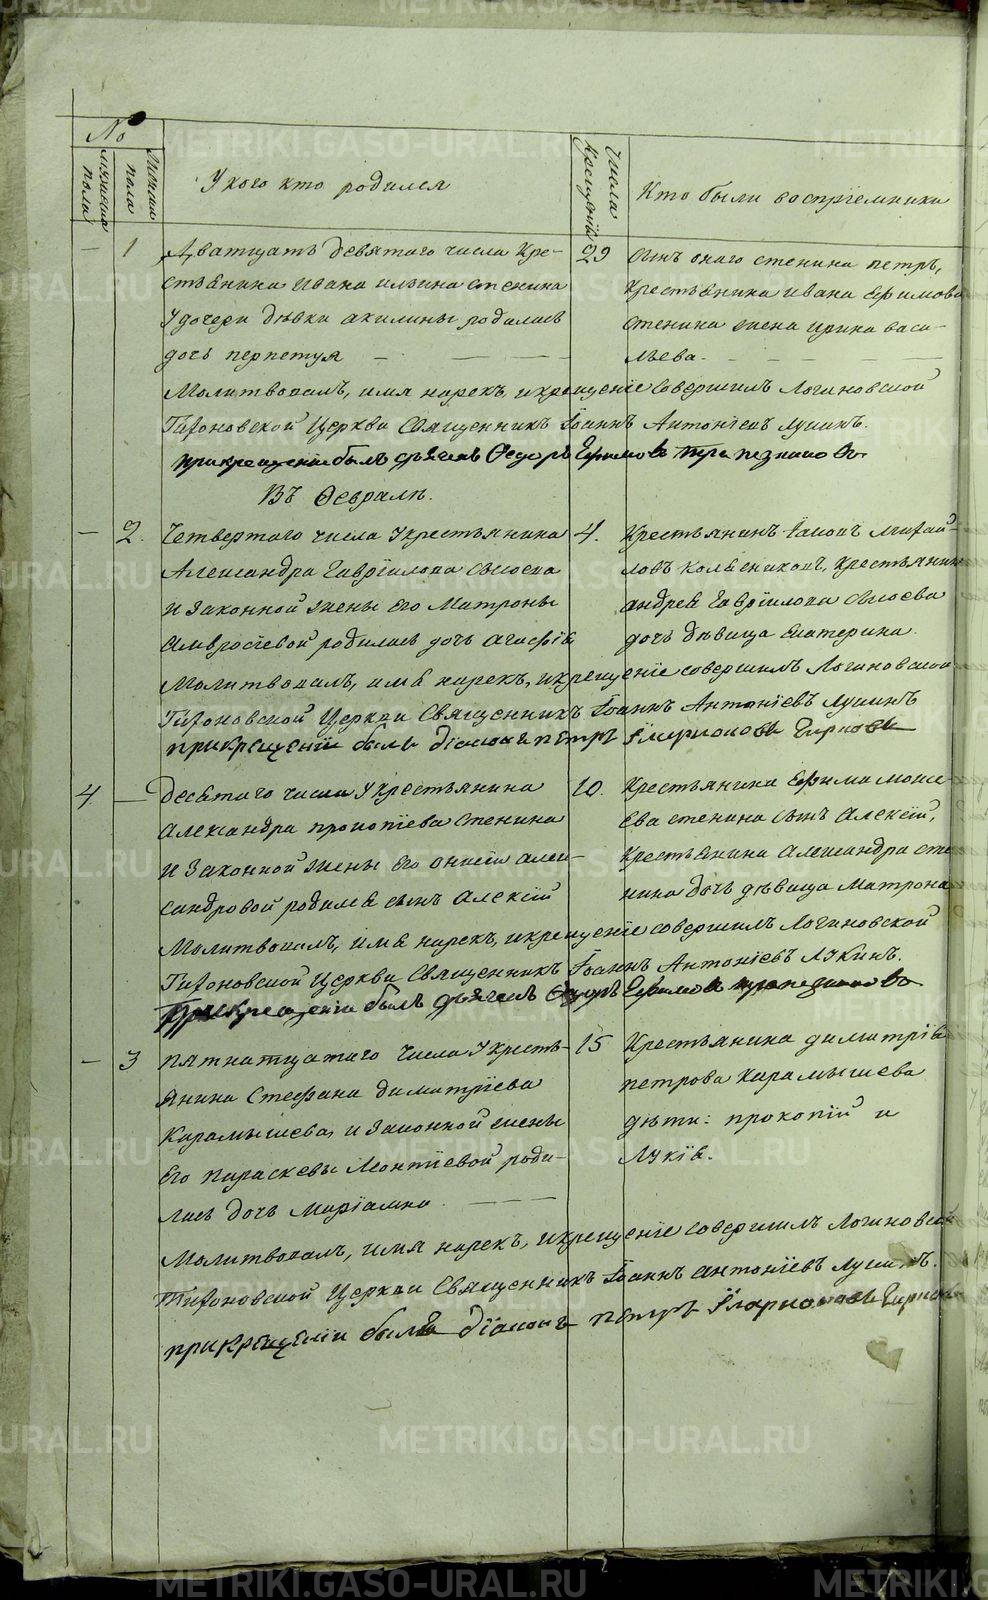 METRIKI.GASO-URAL.RU
№
мужеска пола
женска пола
У кого кто родился
Числа крещенія
Кто были воспріемники
— 1 Дватцать девятого числа Кре-
стьянина Ивана ильина стенина
У дочери дѣвки акилины родилась
дочь перпетуя — — —
29
сынъ онаго стенина петръ,
крестьянина ивана Ефимова
стенина жена ирина васи-
льева. — — —
Молитвовалъ, имя нарекъ, и крещеніе совершилъ Логиновской
Тихоновской Церкви Священникъ Іоаннъ Антоніевъ Лукинъ.
при крещеніи былъ дьячекъ Ѳедоръ Ефимовъ
Въ Февралѣ.
— 2. Четвертого числа У крестьянина
Александра Гавріилова
И Законной жены Его Матроны
Амвросіевой родилась дочь агафія
4.
Крестьянинъ Михай-
ловъ Колесниковъ, крестьянина
андрея Гавріилова
дочь дѣвица Екатерина.
Молитвовалъ, имя нарекъ, и крещеніе совершилъ Логиновской
Тихоновской Церкви Священникъ Іоаннъ Антоніевъ Лукинъ
при крещеніи былъ діаконъ петръ
4 — Десятаго числа У крестьянина
Александра прокопіева Стенина
И Законной жены Его алек-
сандровой родился сынъ Алексій
10.
Крестьянина Ефима моисе-
ева стенина сынъ Алексій,
крестьянина Александра сте
нина дочь дѣвица Матрона
Молитвовалъ, имя нарекъ, и крещеніе совершилъ Логиновской
Тихоновской Церкви Священникъ Іоаннъ Антоніевъ Лукинъ.
При крещеніи былъ дьячекъ Ѳедоръ Ефимовъ
— 3 пятнатцатаго числа У кресть-
янина Стефана димитріева
Карамышева, и Законной жены
Его параскевы Леонтіевой роди-
лась дочь Маріамна — —
15
Крестьянина димитрія
петрова Карамышева
дѣти: прокопій и
Лукія.
Молитвовалъ, имя нарекъ, и крещеніе совершилъ Логиновской
Тихоновской Церкви Священникъ Іоаннъ антоніевъ Лукинъ.
при крещеніи былъ діаконъ петръ